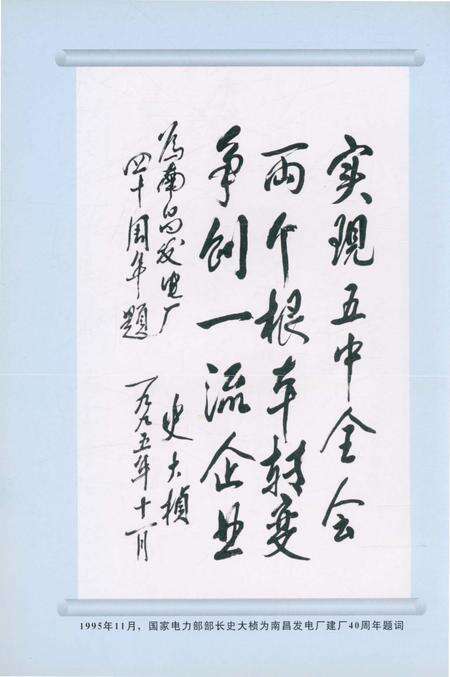 实现五中全会
两个根本转变
争创一流企业
为南昌发电厂
四十周年题
史大桢
一九九五年十一月
1995年11月，国家电力部部长史大桢为南昌发电厂建厂40周年题词